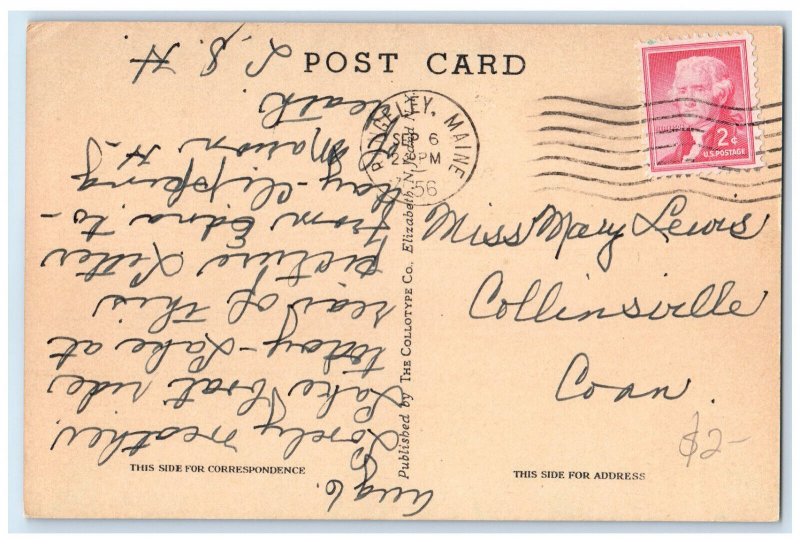 POST CARD
RANGELEY, MAINE
SEP 6
2 PM
56
2¢
U.S. POSTAGE
Miss Mary Lewis
Collinsville
Conn.
$2-
THIS SIDE FOR CORRESPONDENCE
THIS SIDE FOR ADDRESS
Published by THE COLLOTYPE CO., Elizabeth, N. J. and N.Y.
Aug 6.
Lovely weather.
Lake boat ride
today - Lake at
rear of this
picture Letter
from Edna to-
day - clipping
Mason H
death
L. S. H.